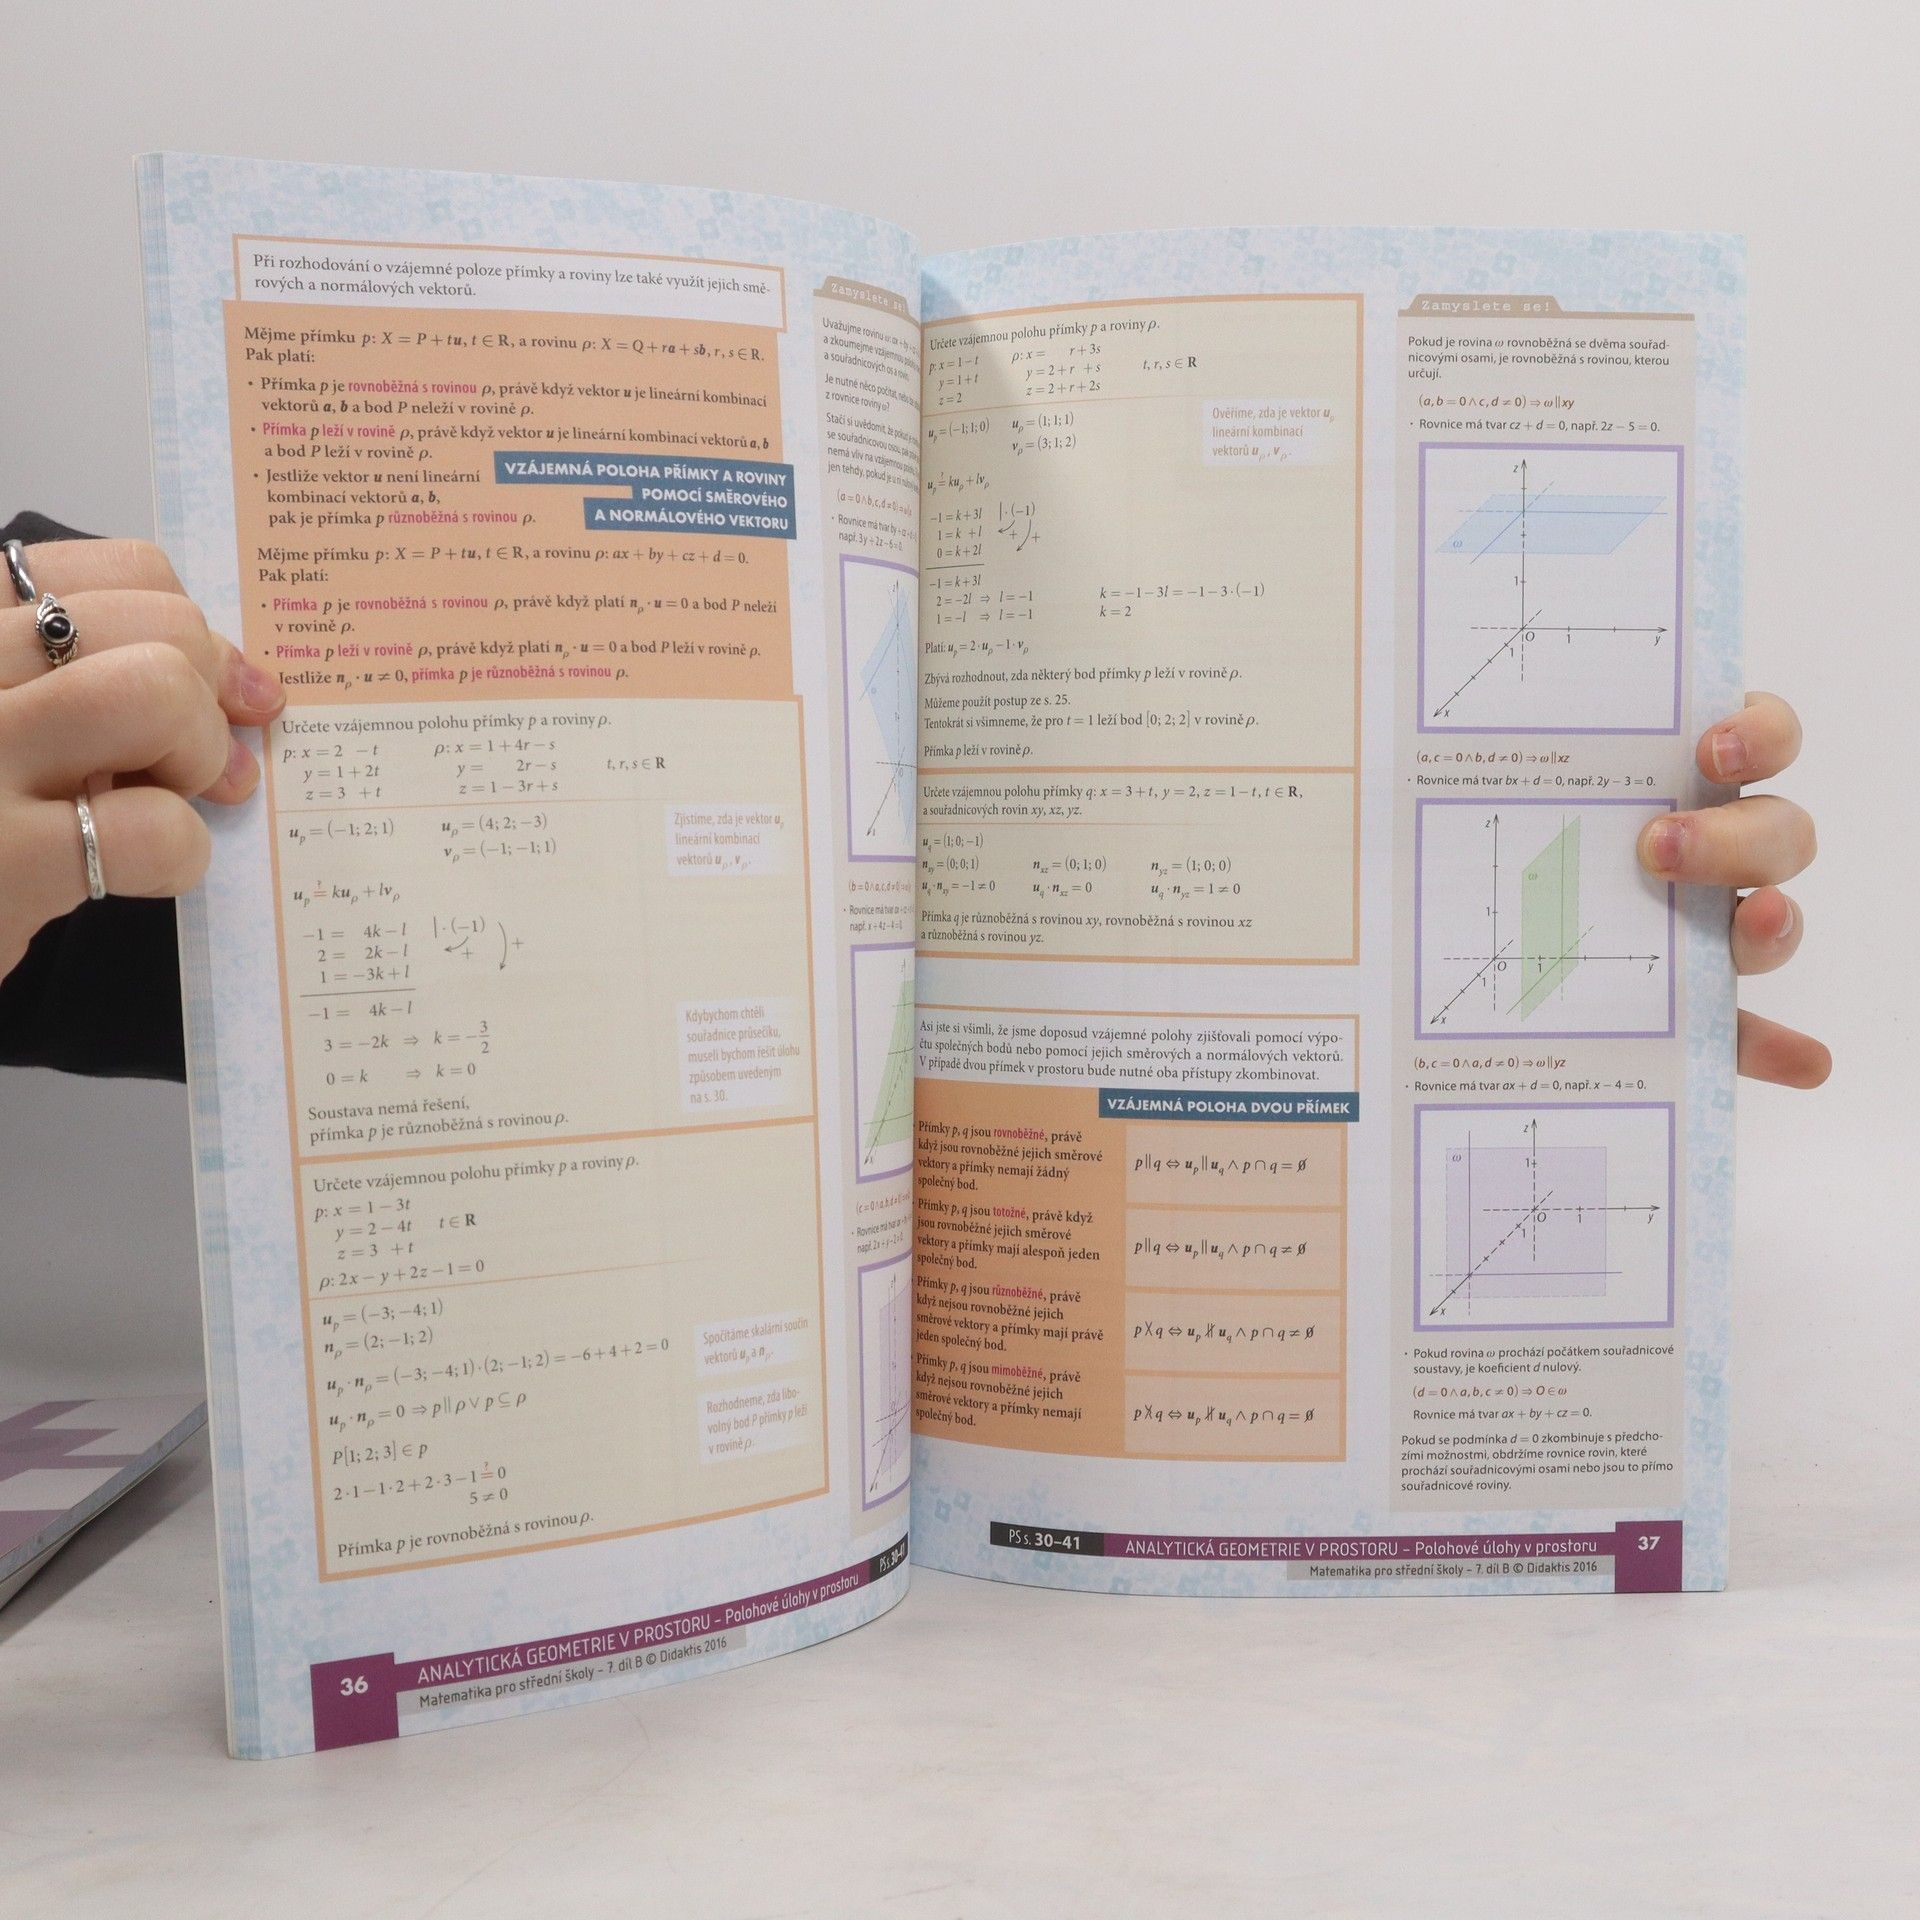 Při rozhodování o vzájemné poloze přímky a roviny lze také využít jejich smě-
rových a normálových vektorů.
Mějme přímku p: X = P + tu, t ∈ R, a rovinu ρ: X = Q + ra + sb, r, s ∈ R.
Pak platí:
• Přímka p je rovnoběžná s rovinou ρ, právě když vektor u je lineární kombinací
vektorů a, b a bod P neleží v rovině ρ.
• Přímka p leží v rovině ρ, právě když vektor u je lineární kombinací vektorů a, b
a bod P leží v rovině ρ.
• Jestliže vektor u není lineární
kombinací vektorů a, b,
pak je přímka p různoběžná s rovinou ρ.
VZÁJEMNÁ POLOHA PŘÍMKY A ROVINY
POMOCÍ SMĚROVÉHO
A NORMÁLOVÉHO VEKTORU
Mějme přímku p: X = P + tu, t ∈ R, a rovinu ρ: ax + by + cz + d = 0.
Pak platí:
• Přímka p je rovnoběžná s rovinou ρ, právě když platí nρ · u = 0 a bod P neleží
v rovině ρ.
• Přímka p leží v rovině ρ, právě když platí nρ · u = 0 a bod P leží v rovině ρ.
Jestliže nρ · u ≠ 0, přímka p je různoběžná s rovinou ρ.
Určete vzájemnou polohu přímky p a roviny ρ.
p: x = 2 − t ρ: x = 1 + 4r − s
y = 1 + 2t y = 2r − s t, r, s ∈ R
z = 3 + t z = 1 − 3r + s
up = (−1; 2; 1) uρ = (4; 2; −3)
vρ = (−1; −1; 1)
Zjistíme, zda je vektor up
lineární kombinací
vektorů uρ, vρ.
up ?= kuρ + lvρ
−1 = 4k − l | · (−1)
2 = 2k − l + +
1 = −3k + l
−1 = 4k − l
3 = −2k ⇒ k = −3/2
0 = k ⇒ k = 0
Kdybychom chtěli
souřadnice průsečíku,
museli bychom řešit úlohu
způsobem uvedeným
na s. 30.
Soustava nemá řešení,
přímka p je různoběžná s rovinou ρ.
Určete vzájemnou polohu přímky p a roviny ρ.
p: x = 1 − 3t
y = 2 − 4t t ∈ R
z = 3 + t
ρ: 2x − y + 2z − 1 = 0
up = (−3; −4; 1)
nρ = (2; −1; 2)
up · nρ = (−3; −4; 1) · (2; −1; 2) = −6 + 4 + 2 = 0
Spočítáme skalární součin
vektorů up a nρ.
up · nρ = 0 ⇒ p ∥ ρ ∨ p ⊆ ρ
Rozhodneme, zda libo-
volný bod P přímky p leží
v rovině ρ.
P[1; 2; 3] ∈ p
2·1 − 1·2 + 2·3 − 1 ?= 0
5 ≠ 0
Přímka p je rovnoběžná s rovinou ρ.
36
ANALYTICKÁ GEOMETRIE V PROSTORU – Polohové úlohy v prostoru
PS s. 30–41
Matematika pro střední školy – 7. díl B © Didaktis 2016
Zamyslete se!
Uvažujme rovinu
a zkoumejme vzájemnou
a souřadnicových os a rovin.
Je nutné něco počítat, nebo
z rovnice roviny ω?
Stačí si uvědomit, že pokud je
se souřadnicovou osou, pak
nemá vliv na vzájemnou
jen tehdy, pokud je u ní
(a = 0 ∧ b, c, d ≠ 0) ⇒
• Rovnice má tvar by + cz
např. 3y + 2z − 6 = 0.
(b = 0 ∧ a, c, d ≠ 0) ⇒
• Rovnice má tvar
např. x + 4z − 4 = 0.
• Rovnice má tvar
Určete vzájemnou polohu přímky p a roviny ρ.
p: x = 1 − t ρ: x = r + 3s
y = 1 + t y = 2 + r + s t, r, s ∈ R
z = 2 z = 2 + r + 2s
up = (−1; 1; 0) uρ = (1; 1; 1)
vρ = (3; 1; 2)
Ověříme, zda je vektor up
lineární kombinací
vektorů uρ, vρ.
up ?= kuρ + lvρ
−1 = k + 3l | · (−1)
1 = k + l + +
0 = k + 2l
−1 = k + 3l
2 = −2l ⇒ l = −1 k = −1 − 3l = −1 − 3 · (−1)
1 = −l ⇒ l = −1 k = 2
Platí: up = 2 · uρ − 1 · vρ
Zbývá rozhodnout, zda některý bod přímky p leží v rovině ρ.
Můžeme použít postup ze s. 25.
Tentokrát si všimneme, že pro t = 1 leží bod [0; 2; 2] v rovině ρ.
Přímka p leží v rovině ρ.
Určete vzájemnou polohu přímky q: x = 3 + t, y = 2, z = 1 − t, t ∈ R,
a souřadnicových rovin xy, xz, yz.
uq = (1; 0; −1)
nxy = (0; 0; 1) nxz = (0; 1; 0) nyz = (1; 0; 0)
uq · nxy = −1 ≠ 0 uq · nxz = 0 uq · nyz = 1 ≠ 0
Přímka q je různoběžná s rovinou xy, rovnoběžná s rovinou xz
a různoběžná s rovinou yz.
Asi jste si všimli, že jsme doposud vzájemné polohy zjišťovali pomocí výpo-
čtu společných bodů nebo pomocí jejich směrových a normálových vektorů.
V případě dvou přímek v prostoru bude nutné oba přístupy zkombinovat.
VZÁJEMNÁ POLOHA DVOU PŘÍMEK
Přímky p, q jsou rovnoběžné, právě
když jsou rovnoběžné jejich směrové
vektory a přímky nemají žádný
společný bod.
p ∥ q ⇔ up ∥ uq ∧ p ∩ q = ∅
Přímky p, q jsou totožné, právě když
jsou rovnoběžné jejich směrové
vektory a přímky mají alespoň jeden
společný bod.
p ∥ q ⇔ up ∥ uq ∧ p ∩ q ≠ ∅
Přímky p, q jsou různoběžné, právě
když nejsou rovnoběžné jejich
směrové vektory a přímky mají právě
jeden společný bod.
p ∦ q ⇔ up ∦ uq ∧ p ∩ q ≠ ∅
Přímky p, q jsou mimoběžné, právě
když nejsou rovnoběžné jejich
směrové vektory a přímky nemají
společný bod.
p ∦ q ⇔ up ∦ uq ∧ p ∩ q = ∅
Zamyslete se!
Pokud je rovina ω rovnoběžná se dvěma souřad-
nicovými osami, je rovnoběžná s rovinou, kterou
určují.
(a, b = 0 ∧ c, d ≠ 0) ⇒ ω ∥ xy
• Rovnice má tvar cz + d = 0, např. 2z − 5 = 0.
z
ω
1
O 1 y
1
x
(a, c = 0 ∧ b, d ≠ 0) ⇒ ω ∥ xz
• Rovnice má tvar bx + d = 0, např. 2y − 3 = 0.
z
ω
1
O 1 y
1
x
(b, c = 0 ∧ a, d ≠ 0) ⇒ ω ∥ yz
• Rovnice má tvar ax + d = 0, např. x − 4 = 0.
z
ω
1
O 1 y
1
x
• Pokud rovina ω prochází počátkem souřadnicové
soustavy, je koeficient d nulový.
(d = 0 ∧ a, b, c ≠ 0) ⇒ O ∈ ω
Rovnice má tvar ax + by + cz = 0.
Pokud se podmínka d = 0 zkombinuje s předcho-
zími možnostmi, obdržíme rovnice rovin, které
prochází souřadnicovými osami nebo jsou to přímo
souřadnicové roviny.
PS s. 30–41
ANALYTICKÁ GEOMETRIE V PROSTORU – Polohové úlohy v prostoru
37
Matematika pro střední školy – 7. díl B © Didaktis 2016